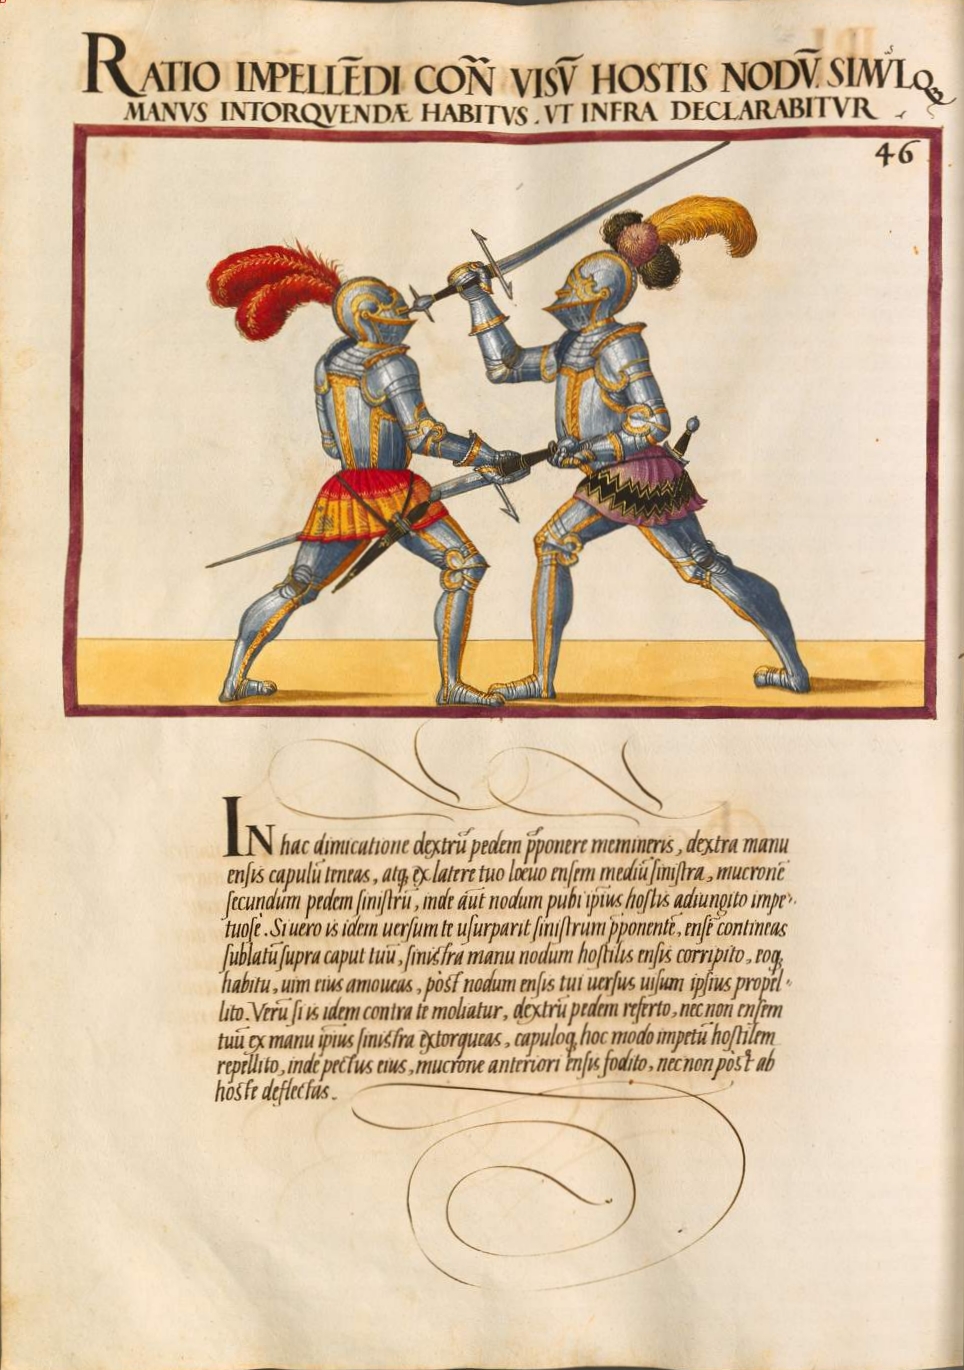 RATIO IMPELLĒDI COÑ VISV̄ HOSTIS NODV̄. SIMVLQꝫ
MANVS INTORQVENDÆ HABITVS. VT INFRA DECLARABITVR
46
IN hac dimicatione dextrū pedem p̄ponere memineris, dextra manu
ensis capulū teneas, atqꝫ ex latere tuo loeuo ensem mediū sinistra, mucronē
secundum pedem sinistrū, inde aūt nodum pubi ip̄ius hostis adiungito impe-
tuosè. Si uero is idem uersum te usurparit sinistrum p̄ponente, ensē contineas
sublatū supra caput tuū, sinistra manu nodum hostilis ensis corripito, eoqꝫ
habitu, uim eius amoueas, pōst nodum ensis tui uersus uisum ipsius propel-
lito. Verū si is idem contra te moliatur, dextrū pedem referto, nec non ensem
tuū ex manu ip̄ius sinistra extorqueas, capuloqꝫ hoc modo impetū hostilem
repellito, inde pectus eius, mucrone anteriori ensis fodito, nec non pōst ab
hoste deflectas.